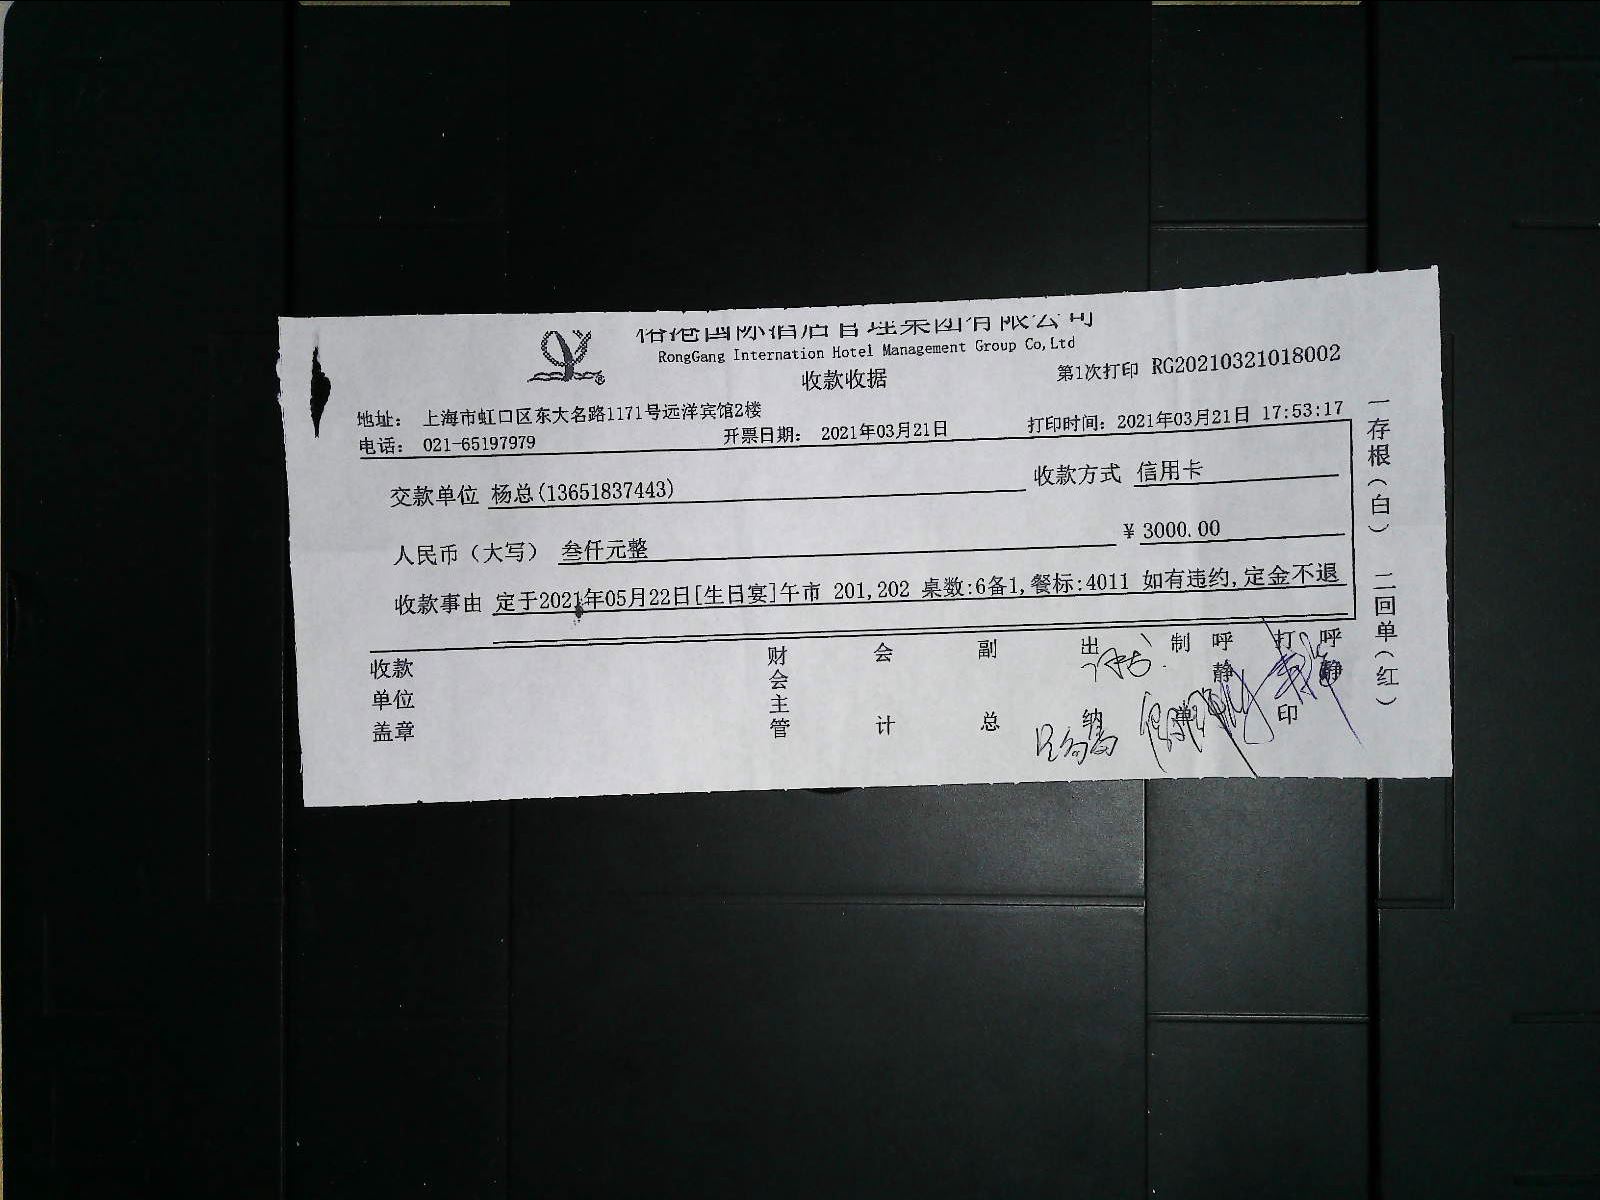 国际酒店管理集团有限公司
RongGang Internation Hotel Management Group Co,Ltd
收款收据
第1次打印 RG20210321018002
地址： 上海市虹口区东大名路1171号远洋宾馆2楼
电话： 021-65197979 开票日期： 2021年03月21日 打印时间：2021年03月21日 17:53:17
交款单位 杨总(13651837443) 收款方式 信用卡
人民币（大写） 叁仟元整 ￥3000.00
收款事由 定于2021年05月22日[生日宴]午市 201,202 桌数:6备1,餐标:4011 如有违约,定金不退
收款单位盖章 财会主管 会计 副总 出纳 制单 呼静 打印 呼静
一存根（白） 二回单（红）